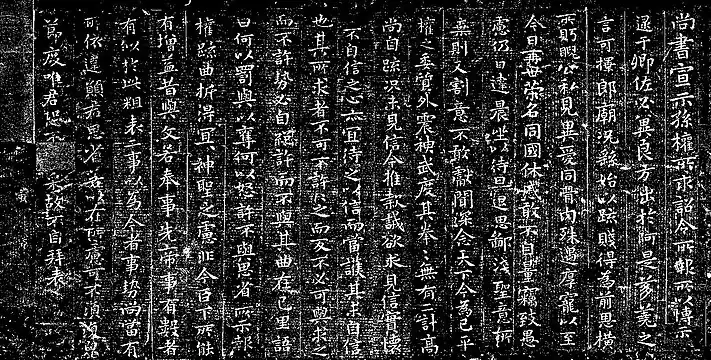 尚書宣示孫權所求詔令所報所以博示
逮于卿佐必冀良方出於阿是芻蕘之
言可擇郎廟況繇始以疏賤得為前恩橫
所盻睨公私見異愛同骨肉殊遇厚寵以至
今日再世榮名同國休慼敢不自量竊致愚
慮仍日達晨坐以待旦退思鄙淺聖意所
棄則又割意不敢獻聞深念天下今為已平
權之委質外震神武度其拳〻無有二計高
尚自疏況未見信今推款誠欲求見信實懷
不自信之心亦宜待之以信而當護其未自信
也其所求者不可不許許之而反不必可與求之
而不許勢必自絕許而不與其曲在己里語
曰何以罰與以奪何以怒許不與思省所示報
權疏曲折得宜〻神聖之慮非今臣下所能
有增益昔與文若奉事先帝事有數者
有以推此粗表二事以為今者事勢尚當有
所依違願君思省若以在所慮可不須復
節度唯君恐不采故不自拜表